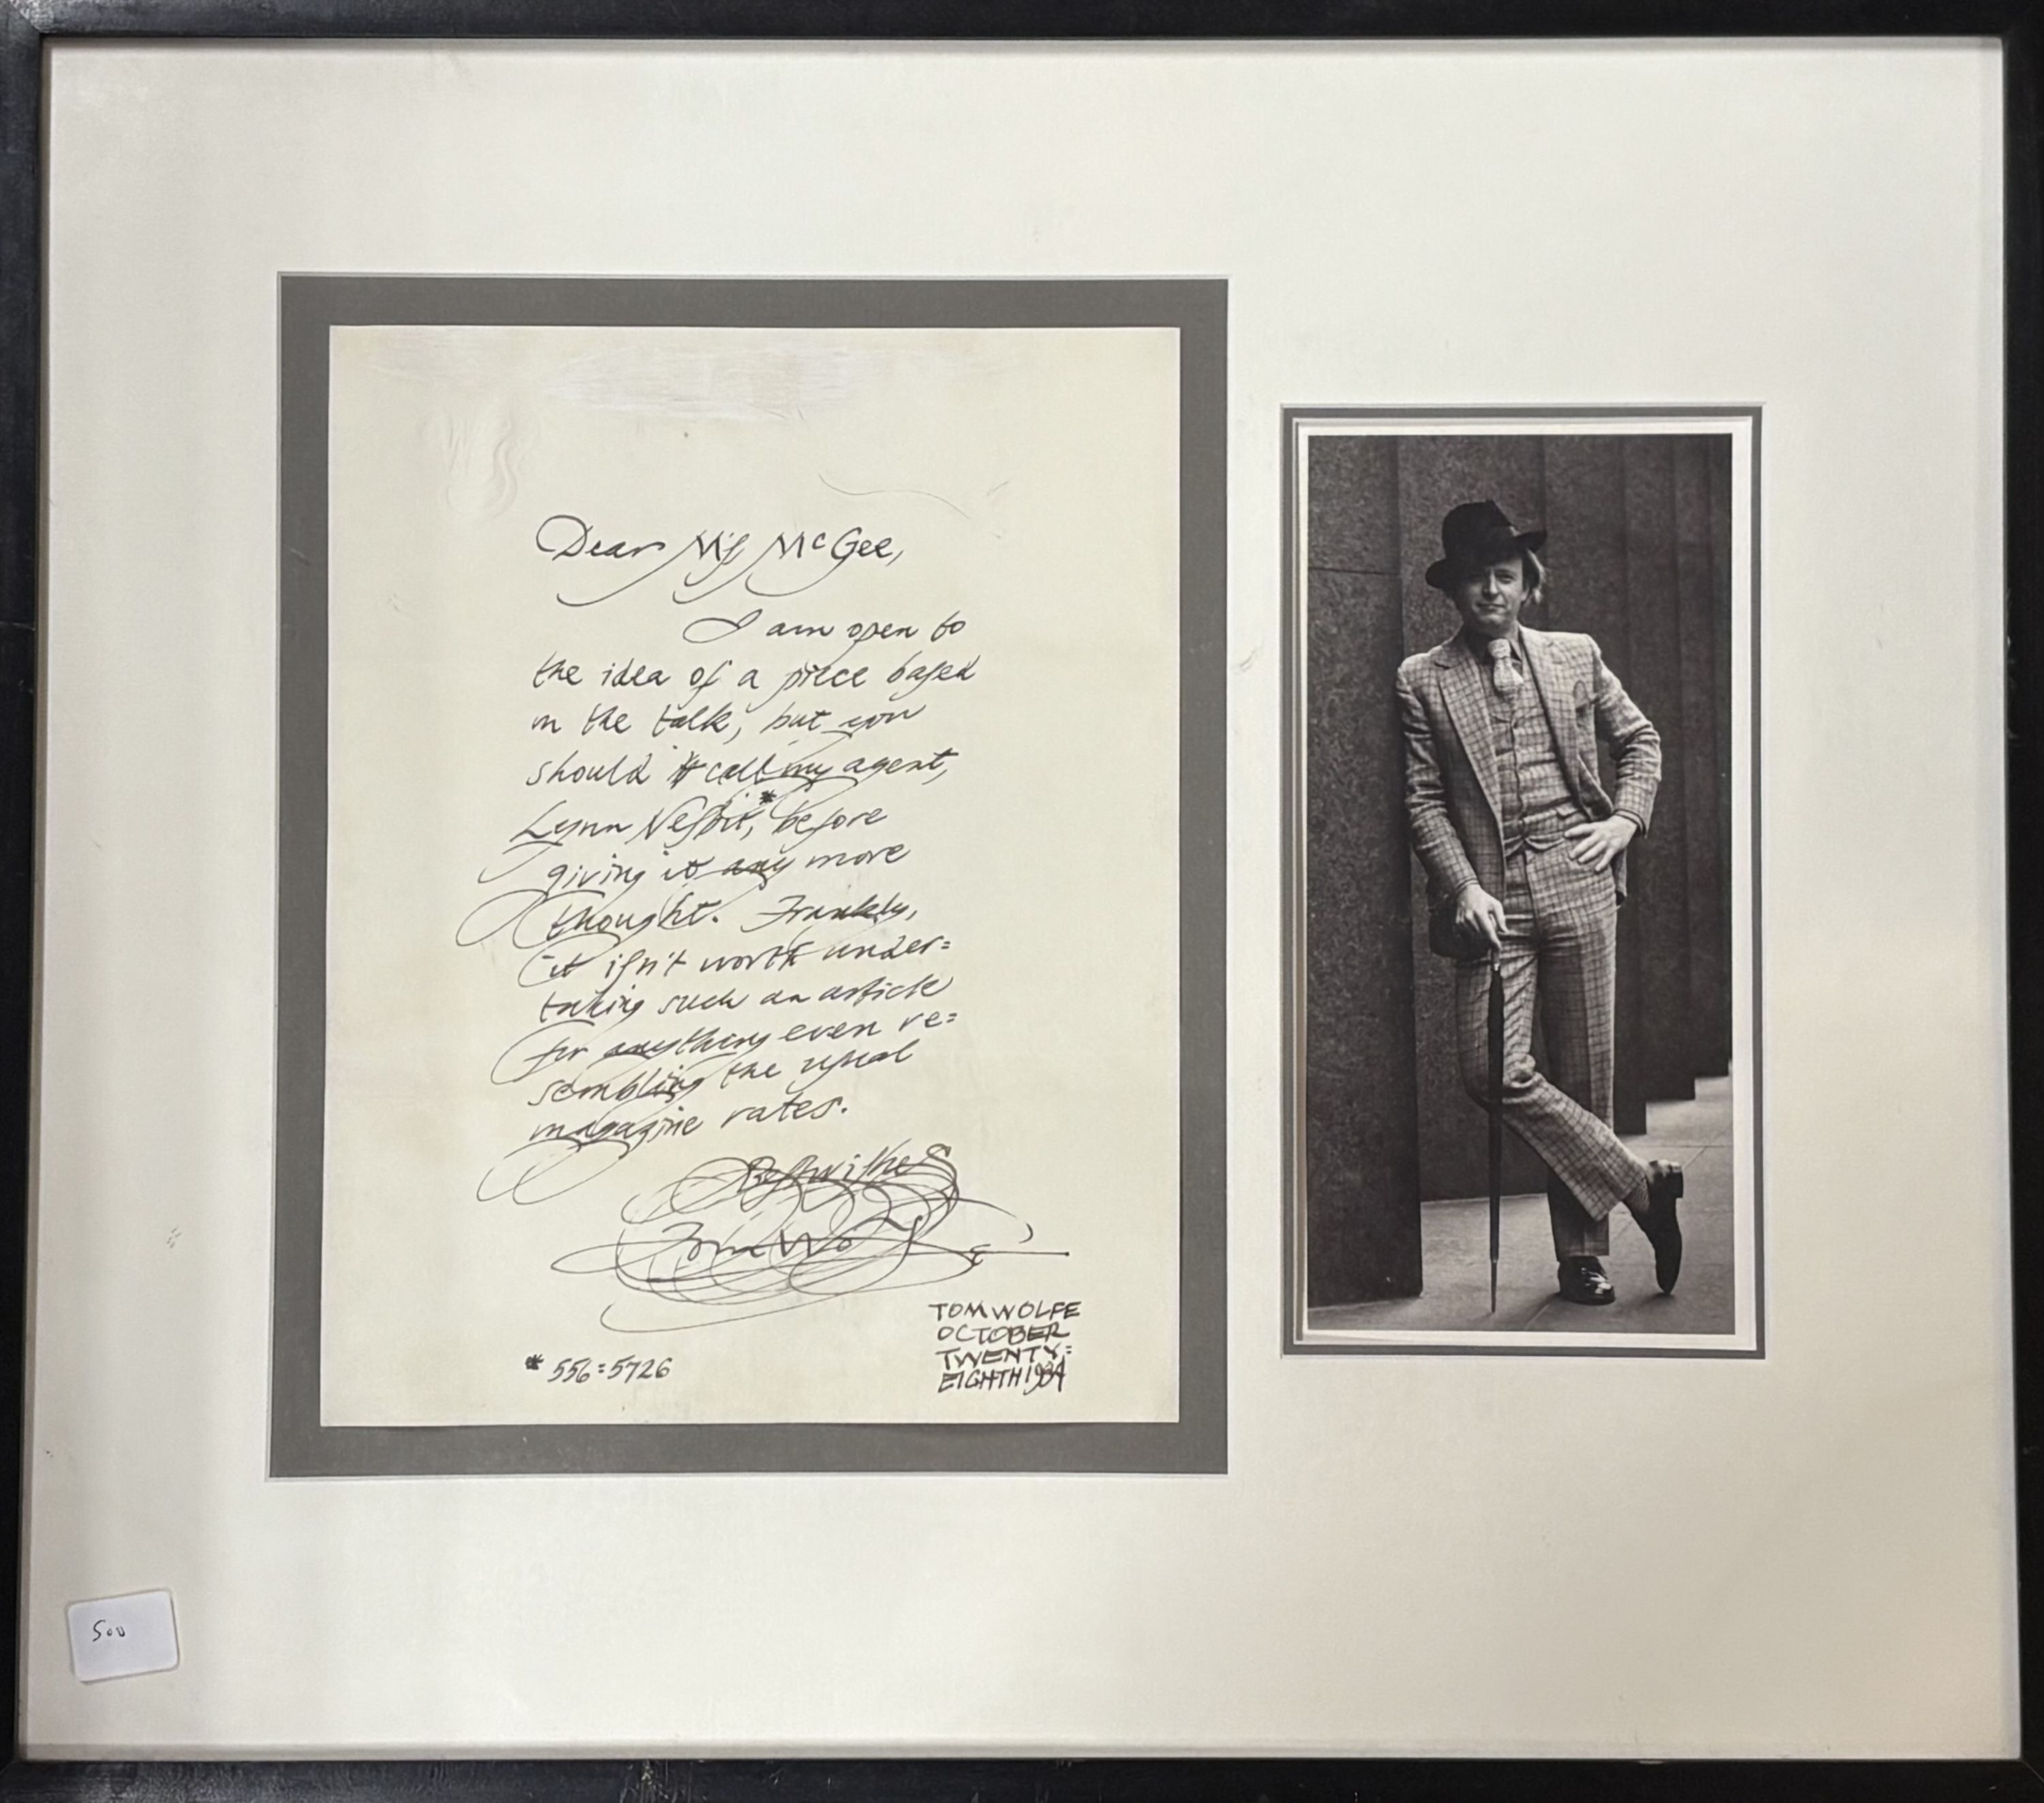 Dear Ms McGee,
I am open to
the idea of a piece based
on the talk, but you
should call my agent,
Lynn Nesbit,* before
giving it any more
thought. Frankly,
it isn't worth under=
taking such an article
for anything even re=
sembling the usual
magazine rates.
Best wishes
Tom Wolfe
TOM WOLFE
OCTOBER
TWENTY=
EIGHTH
* 556=5726
500